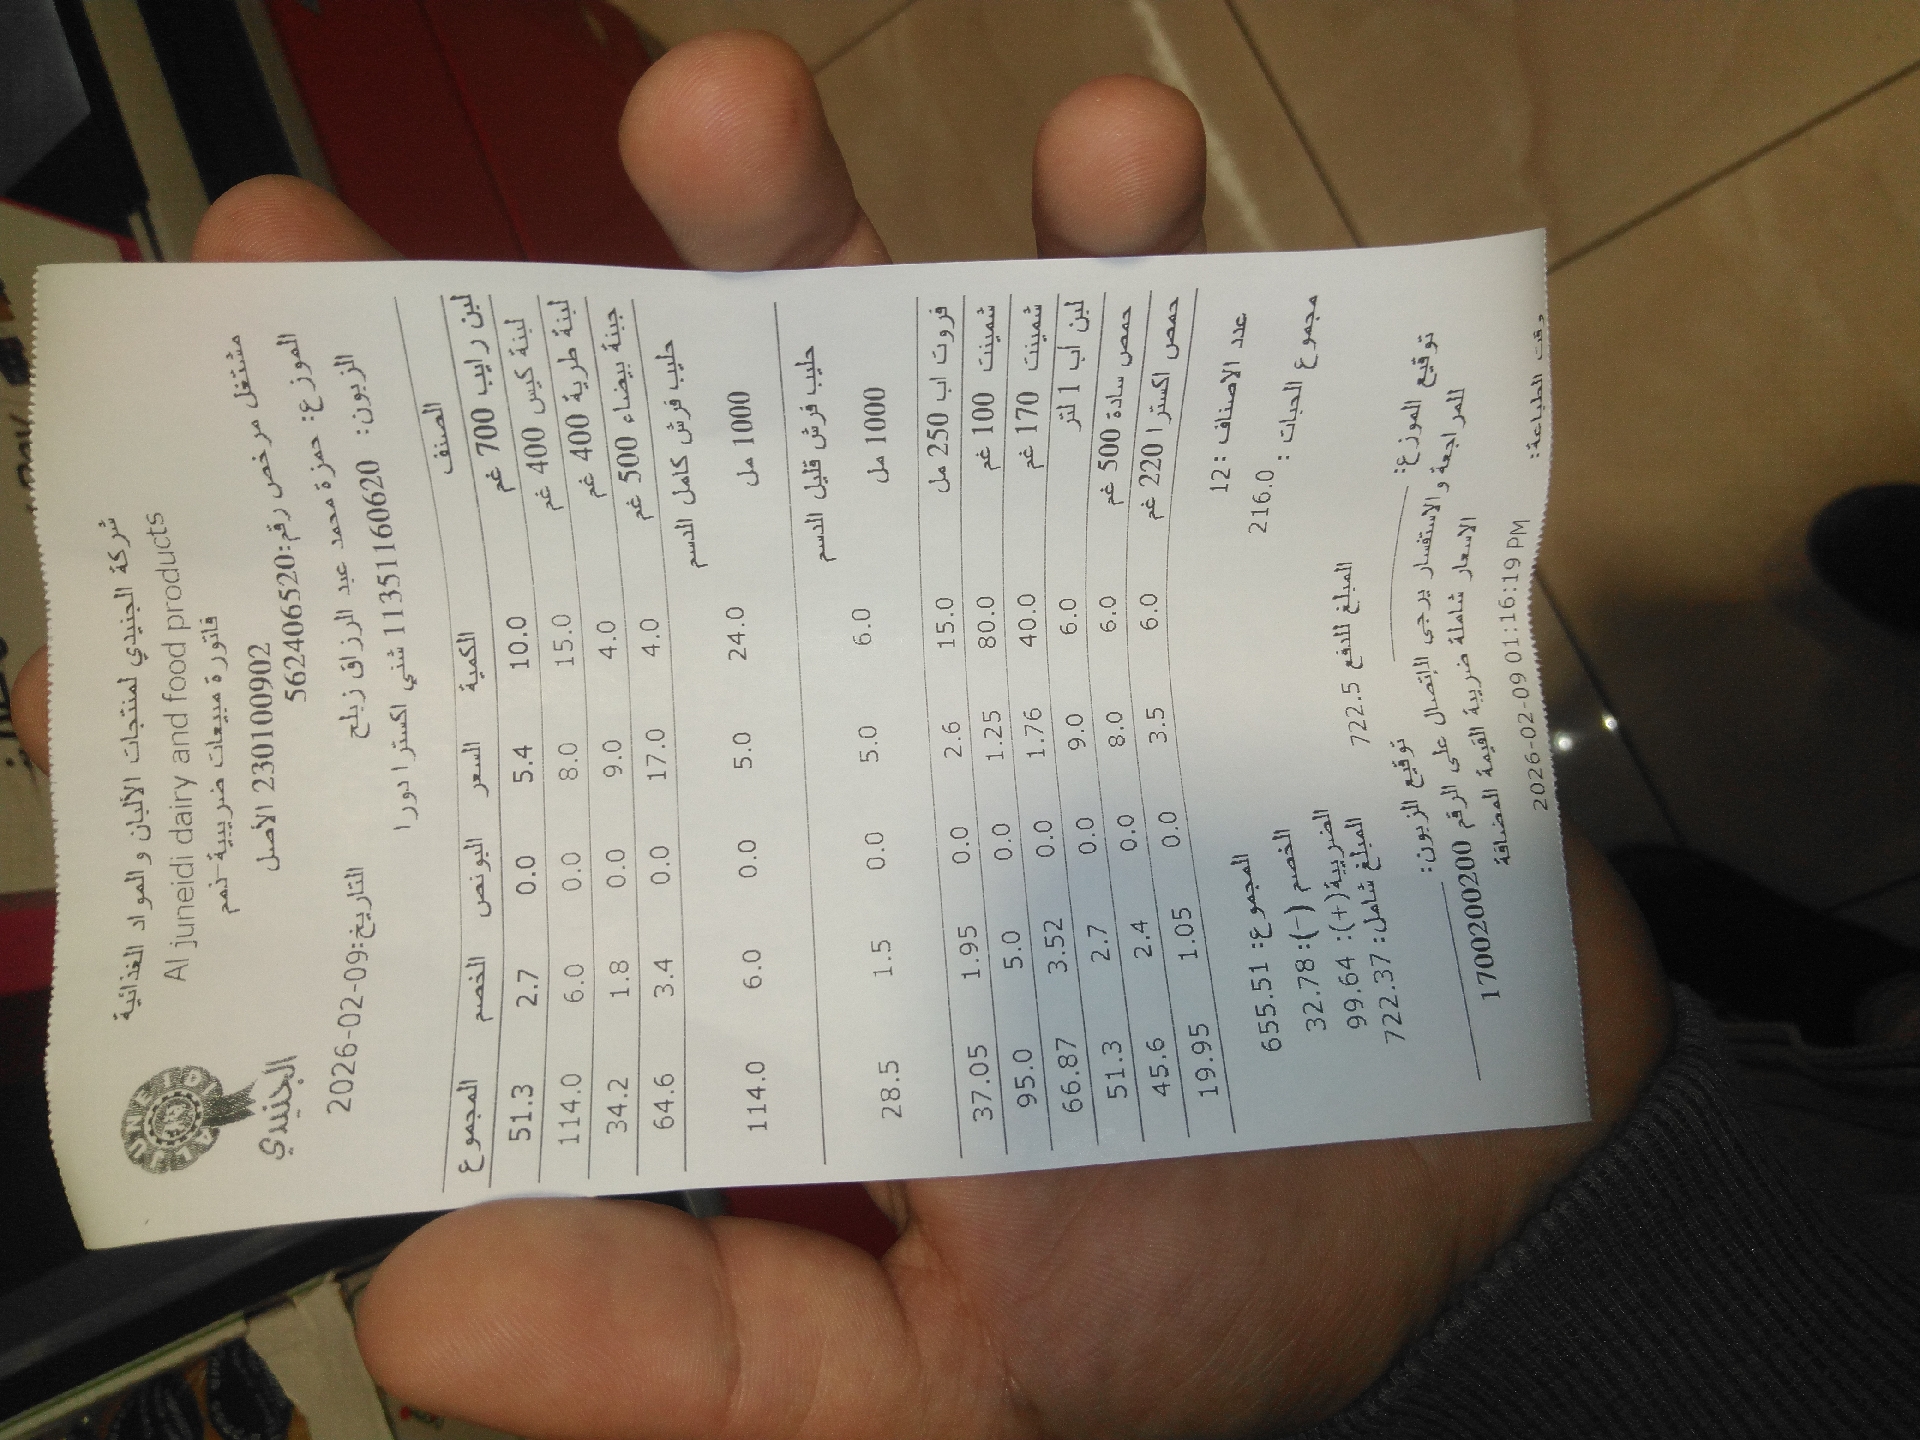 شركة الجنيدي لمنتجات الألبان والمواد الغذائية
Al juneidi dairy and food products
فاتورة مبيعات ضريبية-نعم
230100902 الأصل
AL JUNEIDI
الجنيدي
مشتغل مرخص رقم:562406520
الموزع: حمزة محمد عبد الرزاق زبلح
التاريخ:2026-02-09
الزبون: 11351160620 شني اكسترا دورا
الصنف الكمية السعر البونص الخصم المجموع
لبن رايب 700 غم 10.0 5.4 0.0 2.7 51.3
لبنة كيس 400 غم 15.0 8.0 0.0 6.0 114.0
لبنة طرية 400 غم 4.0 9.0 0.0 1.8 34.2
جبنة بيضاء 500 غم 4.0 17.0 0.0 3.4 64.6
حليب فرش كامل الدسم
1000 مل 24.0 5.0 0.0 6.0 114.0
حليب فرش قليل الدسم
1000 مل 6.0 5.0 0.0 1.5 28.5
فروت اب 250 مل 15.0 2.6 0.0 1.95 37.05
شمينت 100 غم 80.0 1.25 0.0 5.0 95.0
شمينت 170 غم 40.0 1.76 0.0 3.52 66.87
لبن اب 1 لتر 6.0 9.0 0.0 2.7 51.3
حمص سادة 500 غم 6.0 8.0 0.0 2.4 45.6
حمص اكسترا 220 غم 6.0 3.5 0.0 1.05 19.95
عدد الاصناف : 12
المجموع: 655.51
مجموع الحبات : 216.0
الخصم (-): 32.78
الضريبة(+): 99.64
المبلغ للدفع 722.5
المبلغ شامل: 722.37
توقيع الموزع:
توقيع الزبون:
للمراجعة والاستفسار يرجى الاتصال على الرقم 1700200200
الاسعار شاملة ضريبة القيمة المضافة
وقت الطباعة: 2026-02-09 01:16:19 PM